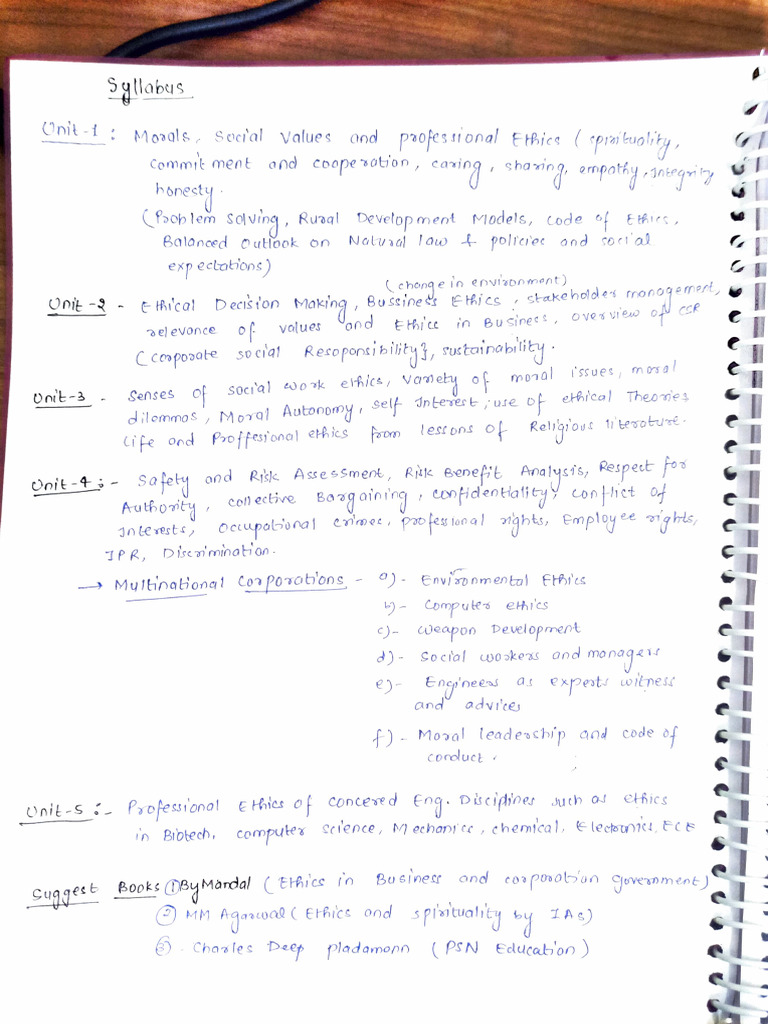 Syllabus
Unit-1 : Morals, Social Values and professional Ethics ( spirituality,
commitment and cooperation, caring, sharing, empathy, Integrity
honesty.
(Problem solving, Rural Development Models, code of Ethics,
Balanced Outlook on Natural law & policies and social
expectations)
(change in environment)
Unit-2 - Ethical Decision Making, Bussiness Ethics, stakeholder management,
relevance of values and Ethics in Business, overview of CSR
(corporate social Resoponsibility}, sustainability.
Unit-3 - Senses of social work ethics, Variety of moral issues, moral
dilemmas, Moral Autonomy, self Interest, use of ethical Theories
Life and Proffesional ethics from lessons of Religious literature.
Unit-4 :- Safety and Risk Assessment, Risk Benefit Analysis, Respect for
Authority, collective Bargaining, confidentiality, conflict of
Interests, occupational crimes, professional rights, Employee rights,
IPR, Discrimination.
→ Multinational Corporations - a)- Environmental Ethics
b)- Computer ethics
c)- Weapon Development
d)- Social workers and managers
e)- Engineers as experts witness
and advices
f)- Moral leadership and code of
conduct.
Unit-5 :- Professional Ethics of concered Eng. Disciplines such as ethics
in Biotech, computer science, Mechanics, chemical, Electronics, ECE
Suggest Books ① By Mandal (Ethics in Business and corporation government)
② MM Agarwal (Ethics and spirituality by IAS)
③ . Charles Deep pladamonn (PSN Education)